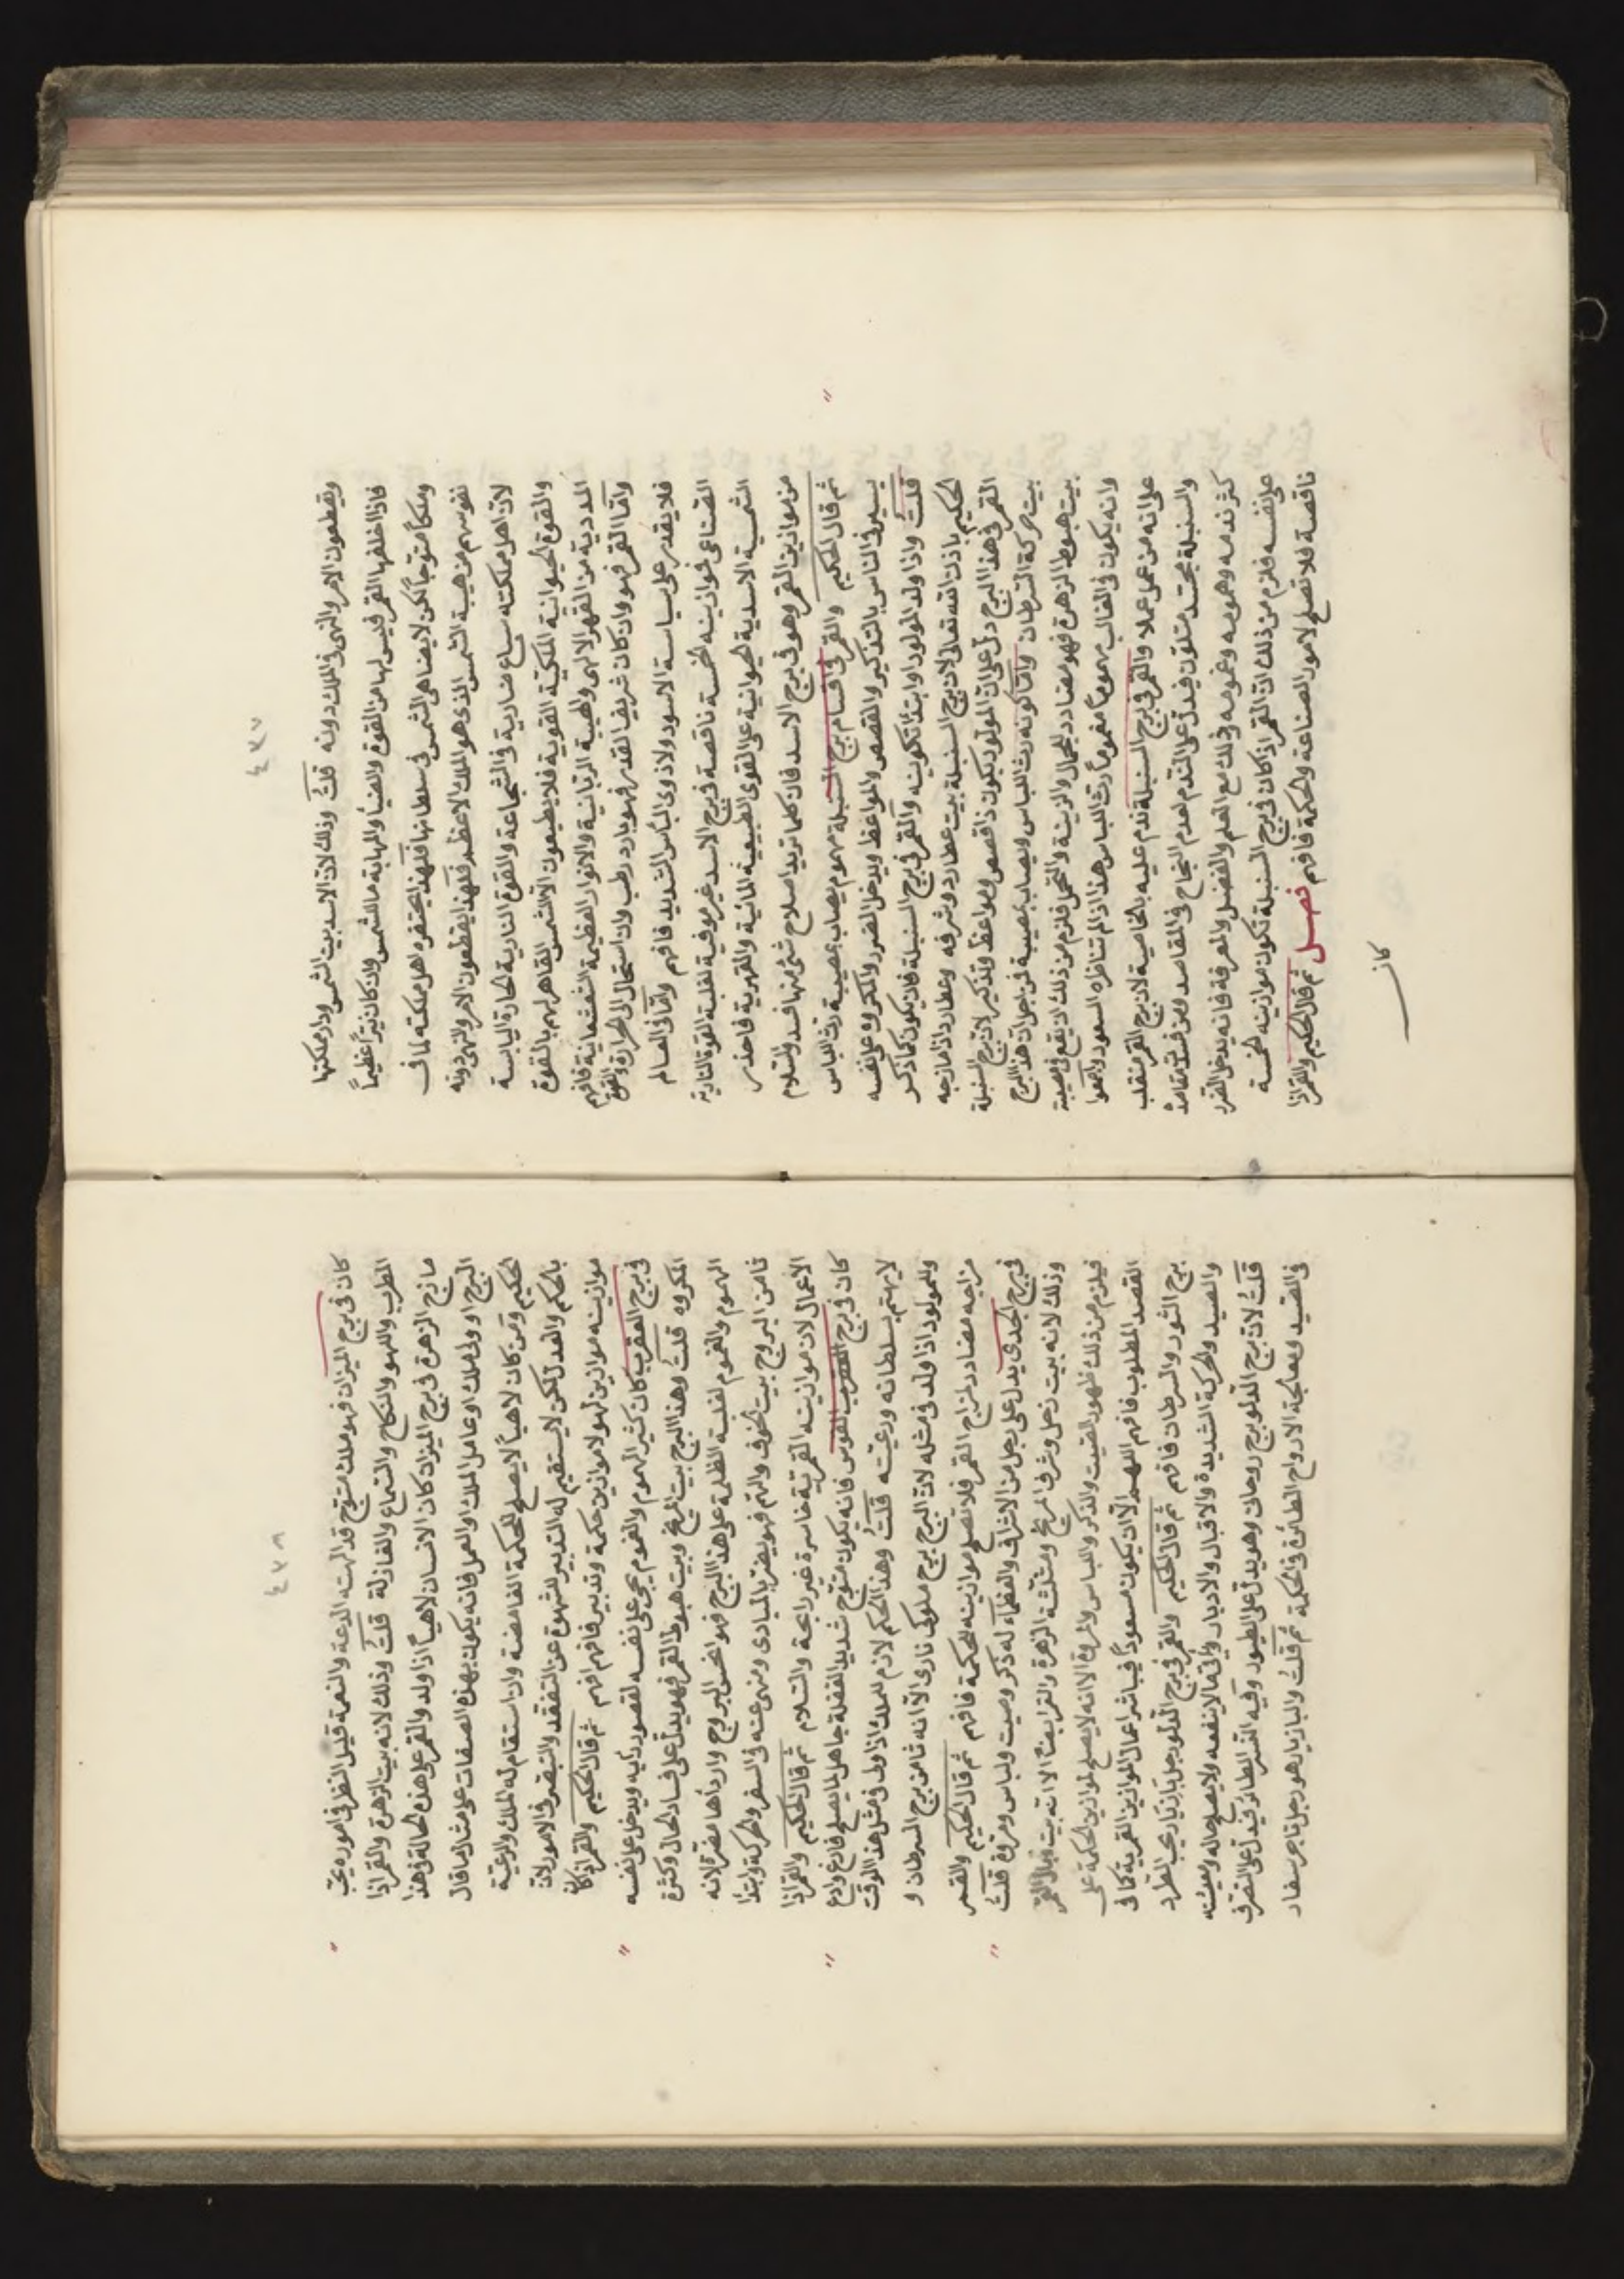 ٤٣٧
ويقطعون الامر والنهى فى الملك دونه قلتُ وذلك لانّ الاسد بيت الشمس ودار مملكتها
فاذا اخلفها القمر فليس لها من القوة والضيأ والمهابة ما للشمس وان كان نيّراً عظيماً
وملكاً متوّجاً لكن لا يضاهى الشمس فى سلطانها فلهذا يحتقره اهل مملكته لما فى
نفوسهم من هيبة الشمس الذى هو الملك الاعظم فلهذا يقطعون الامر والنهى دونه
لانّ اهل مملكته سباع ضارية فى الشجاعة والقوة النارية الحارة اليابسة
والقوة الحيوانية الملكية القوية فلا يطيعون الّا الشمس القاهر لهم بالقوة
المددية من القهر الالهى والهيبة الربانية والانوار العظيمة الشعشعانية فافهم
وامّا القمر فهو وان كان شريف القدر فهو بارد رطب وان استحال الى الحرارة والقوة
فلا يقدر على سياسة الاسود ولا ذوى البأس الشديد فافهم وامّا فى العالم
الصناعى فموازينه الخمسة ناقصة فى برج الاسد غير موفية لغلبة القوة النارية
الشمسية الاسدية الحيوانية على القوى الطبيعية المائية والقهرية فاحذر
من موازين القمر وهو فى برج الاسد فان كلما تريد اصلاح شئ منها فسد والسلام
ثم قال الحكيم والقمر فى اقسام برج السنبلة مهموم يصاب بمصيبة رث اللباس
يسير فى الناس بالتذكير والقصص والمواعظ ويدخل الضرر والمكروه على نفسه
قلتُ واذا ولد المولود او ابتدأ تكوينه والقمر فى برج السنبلة فانه يكون كما ذكر
الحكيم باذن الله تعالى لان برج السنبلة بيت عطارد وشرفه وعطارد اذا مازجه
القمر فى هذا البرج دلّ على انّ المولود يكون ذا قصص ومواعظ وتذكير لانّ برج السنبلة
بيت حركة السرطان وامّا كونه رث اللباس ويصاب بمصيبة فمن اجل ان هذا البرج
بيت هبوط الزهرة فهو مضاد للجمال والزينة والتحلى فلزم من ذلك ان يقع فى مصيبة
وانه يكون فى الغالب مهموماً مغموماً رث اللباس هذا اذا لم تناظره السعود واجمعوا
على انه من عمل عملا والقمر فى برج السنبلة ندم عليه بالخاصية لان برج القمر منقلب
والسنبلة مجسد متلون فيدلّ على الندم لعدم النجاح فى المقاصد ومن فسدت مقاصده
كثر ندمه وهمومه وغمومه وذلك مع العلم والفضل والمعرفة فانه يدخل الضرر
على نفسه فلزم من ذلك انّ القمر اذا كان فى برج السنبلة تكون موازينه الخمسة
ناقصة فلا تصلح لامور الصناعة والحكمة فافهم فصل ثم قال الحكيم والقمر اذا
كان
٤٣٨
كان فى برج الميزان فهو ملك متوّج قد الهته الدعة والنعمة قليل النظر فى اموره يحب
الطرب واللهو والنكاح والسماع والمغازلة قلتُ وذلك لانه بيت الزهرة والقمر اذا
مازج الزهرة فى برج الميزان كان الانسان لاهياً اذا ولد والقمر على هذه الحالة وهذا
البرج او ولى ملك او عامل الملك او العمل فانه يكون بهذه الصفات على مثال ما قال
الحكيم ومن كان لاهياً لا يصلح للحكمة الغامضة وان استقام له الملك والرعية
بالحكم والعدل لكن لا يستقيم له التدبير للشهوة عن التفقد والتبصر فى الامور لانّ
موازينه موازين لهو لا موازين حكمة وتدبير فافهم ثم قال الحكيم والقمر اذا كان
فى برج العقرب كان كثير الهموم والغموم يجنى على نفسه لقصور رأيه ويدخل على نفسه
المكروه قلتُ وهذا البرج بيت المريخ وبيت هبوط القمر فهو يدلّ على فساد الحال وكثرة
الهموم والغموم لغلبة الظلمة على هذا البرج فهو انحس البروج واردأها مضرة لانه
ثامن البروج بيت الخوف والهم فهو يضر بالمبادى ومنهى عنه فى السفر والحركة وابتدأ
الاعمال لان موازينه القمرية خاسرة غير رابحة والسلام ثم قال الحكيم والقمر اذا
كان فى برج القوس فانه يكون متوّج شديد الغفلة جاهل لما يصلح فارغ وادع
لا يهتم بسلطانه ورعيته قلتُ وهذا الحكم لازم للملك اذا ولى فى مثل هذا الوقت
وللمولود اذا ولد فى مثله لانّ البرج برج ملوكى نارى الّا انه ثامن برج السرطان و
مزاجه مضادد لمزاج القمر فلا تصلح موازينه للحكمة فافهم ثم قال الحكيم والقمر
فى برج الجدى يدل على رجل من الاشراف والعظمآء له ذكر وصيت ولباس ومروة قلتُ
وذلك لانه بيت زحل وشرف المريخ ومثلثة الزهرة والقمر ايضاً الا انه بيت وبال القمر
فيلزم من ذلك ظهور الصيت والذكر واللباس والمروة الا انه لا يصلح لموازين الحكمة على
القصد المطلوب فافهم اللهم الّا ان يكون مسعوداً فيباشر اعمال الموازين القمرية كما فى
برج الثور والسرطان فافهم ثم قال الحكيم والقمر فى برج الدلو رجل بازيار يحب الطرد
والصيد والحركة الشديدة والاقبال والادبار والى ما لا ينفعه ولا يصلح حاله ومعيشته
قلتُ لانّ برج الدلو برج روحانى وهو يدل على الطيور وفيه النسر الطائر فيدلّ على التصرف
فى الصيد ومعالجة الارواح الطائرة فى الحكمة ثم قلتُ والبازيار هو رجل تاجر سفار